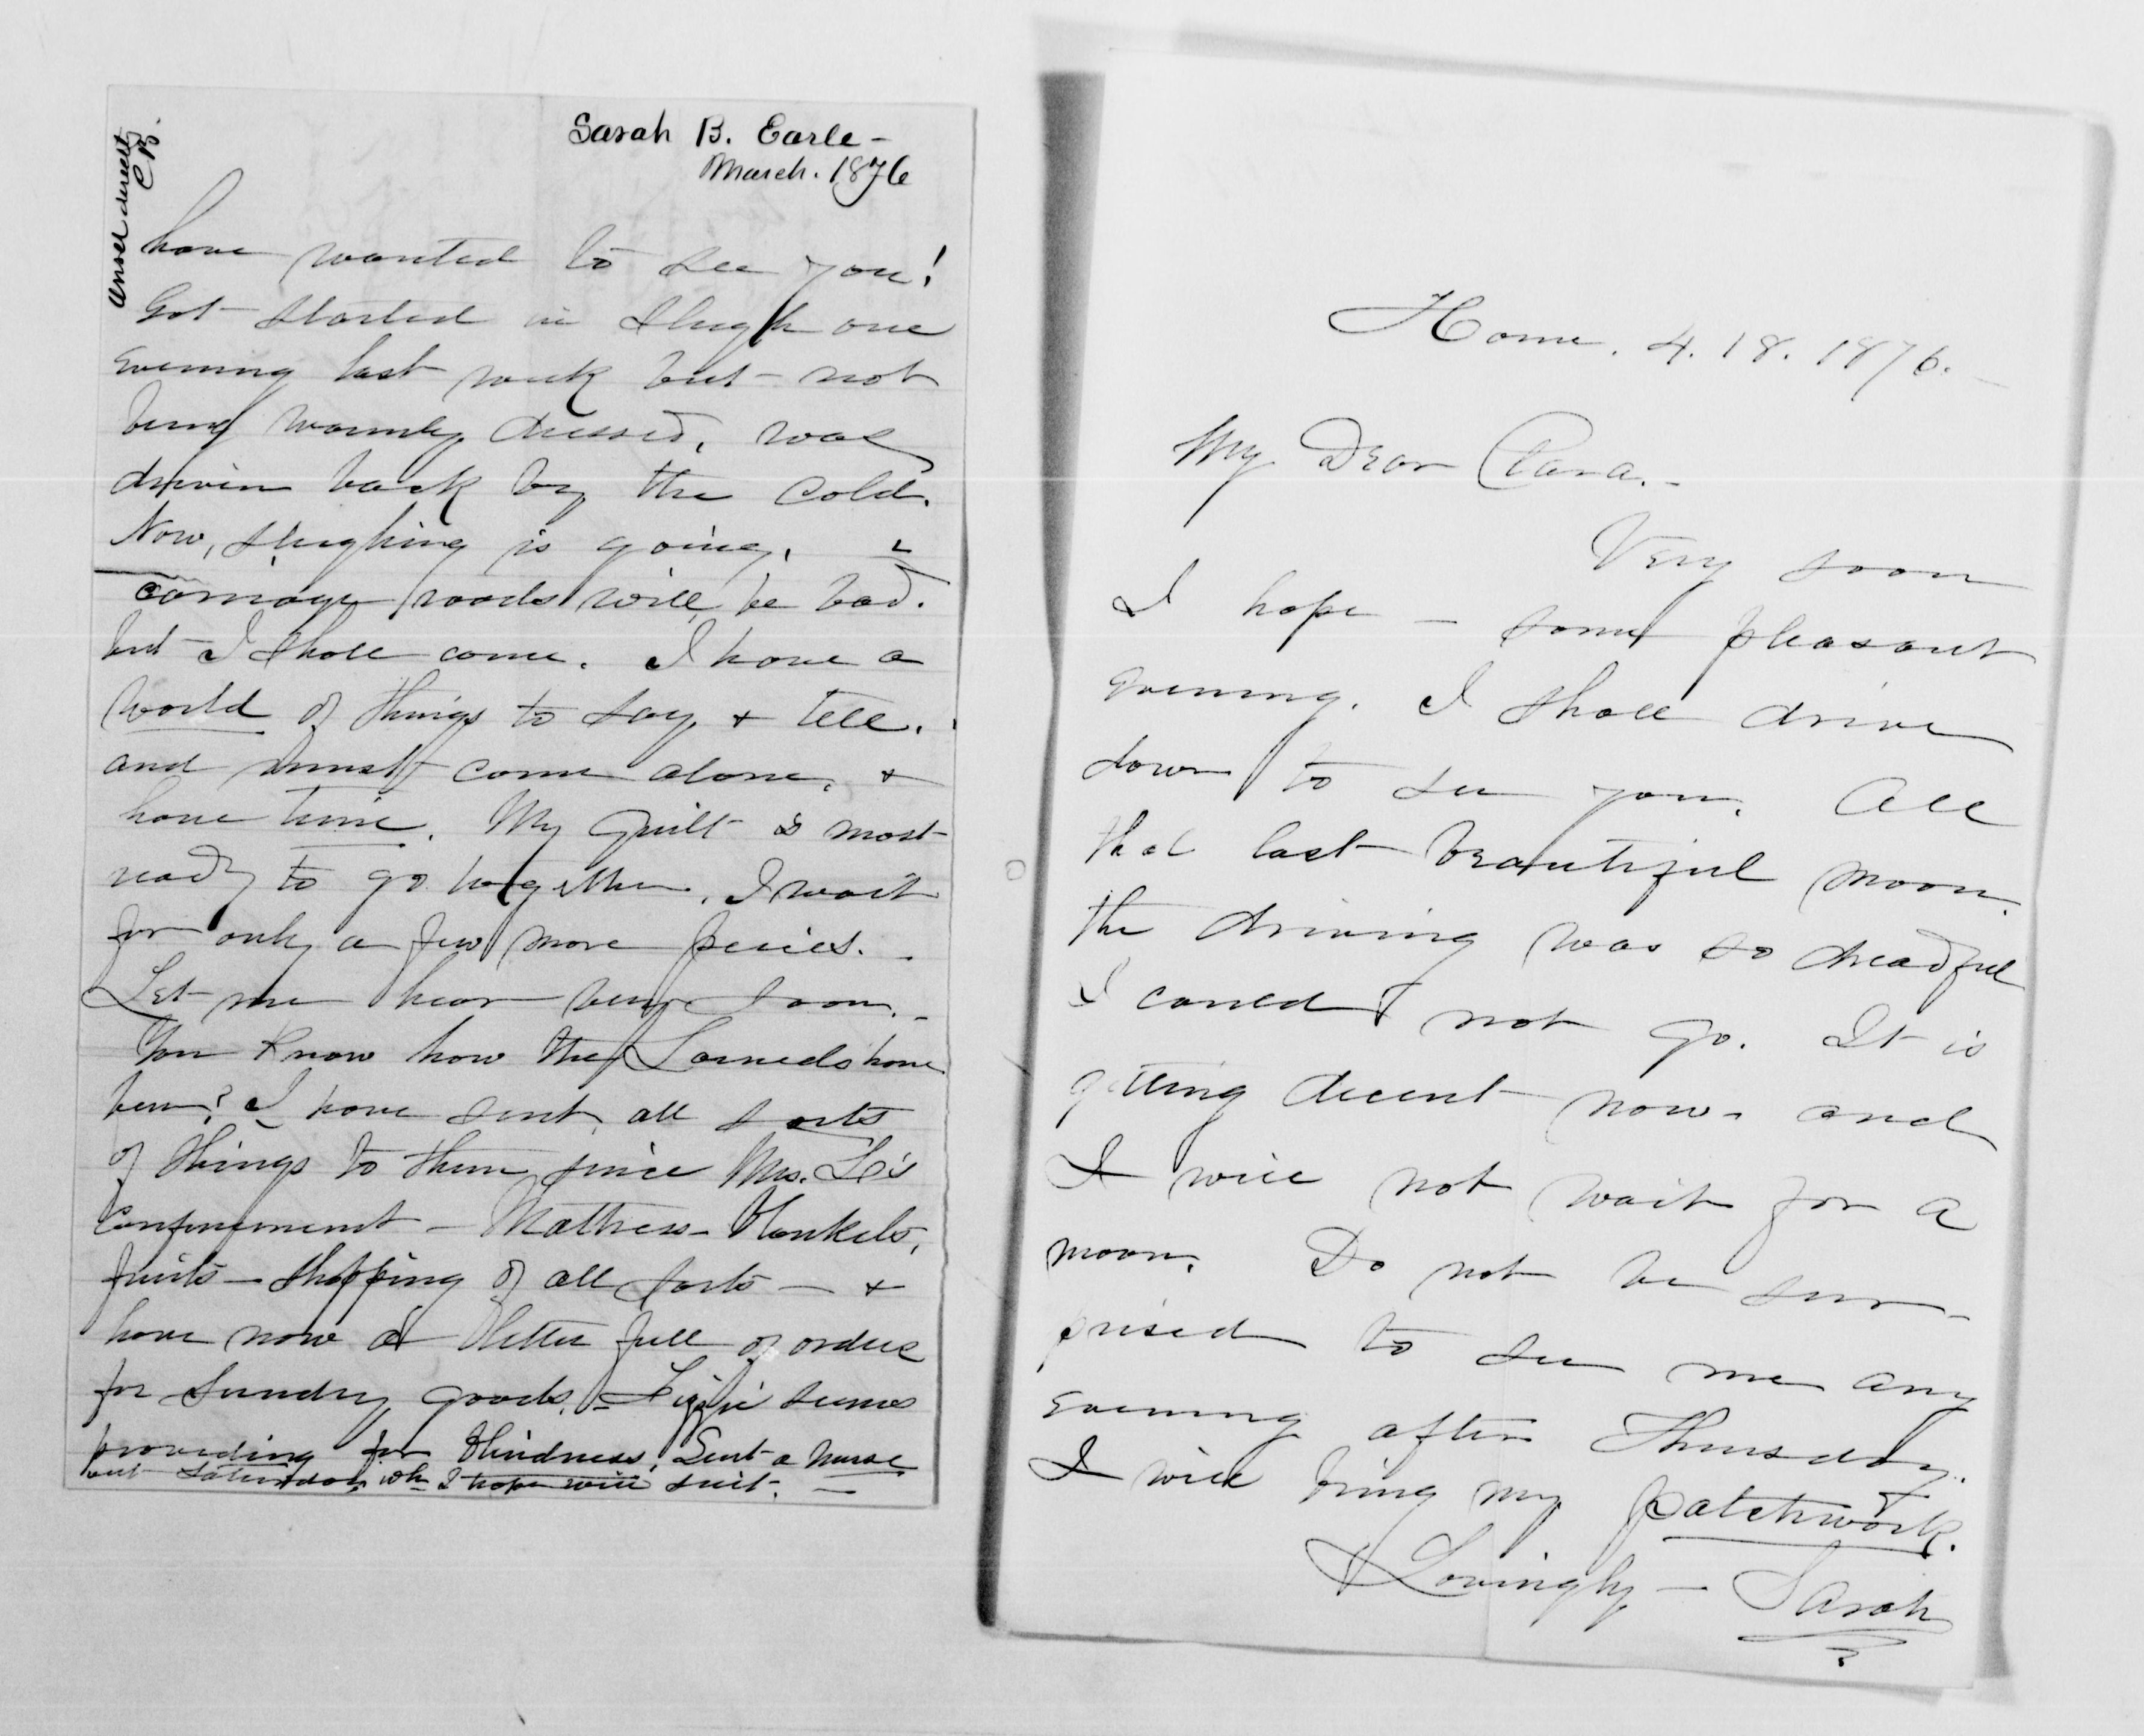 Sarah B. Earle -
March. 1876
Ansd directly
C B.
have wanted to see you!
Got started in sleigh one
evening last week but not
being warmly dressed, was
driven back by the cold.
Now, sleighing is going, &
carriage roads will be bad.
but I shall come. I have a
world of things to say & tell.
and must come alone, &
have time. My Quilt is most
ready to go together. I wait
for only a few more pieces. -
Let me hear very soon. -
You know how the Larneds have
been? I have sent all sorts
of things to them since Mrs. L's
confinement - Mattress - Blankets,
fruits - shopping of all sorts - &
have now a letter full of orders
for sundry goods. - Lizzie seems
providing for blindness. Sent a nurse
out Saturday, wh I hope will suit. -
Home. 4. 18. 1876. -
My Dear Clara. -
Very soon
I hope - some pleasant
evening. I shall drive
down to see you. All
that last beautiful moon.
the driving was so dreadful
I could not go. It is
getting decent now - and
I will not wait for a
moon. Do not be sur-
prised to see me any
evening after Thursday.
I will bring my patchwork.
Lovingly - Sarah